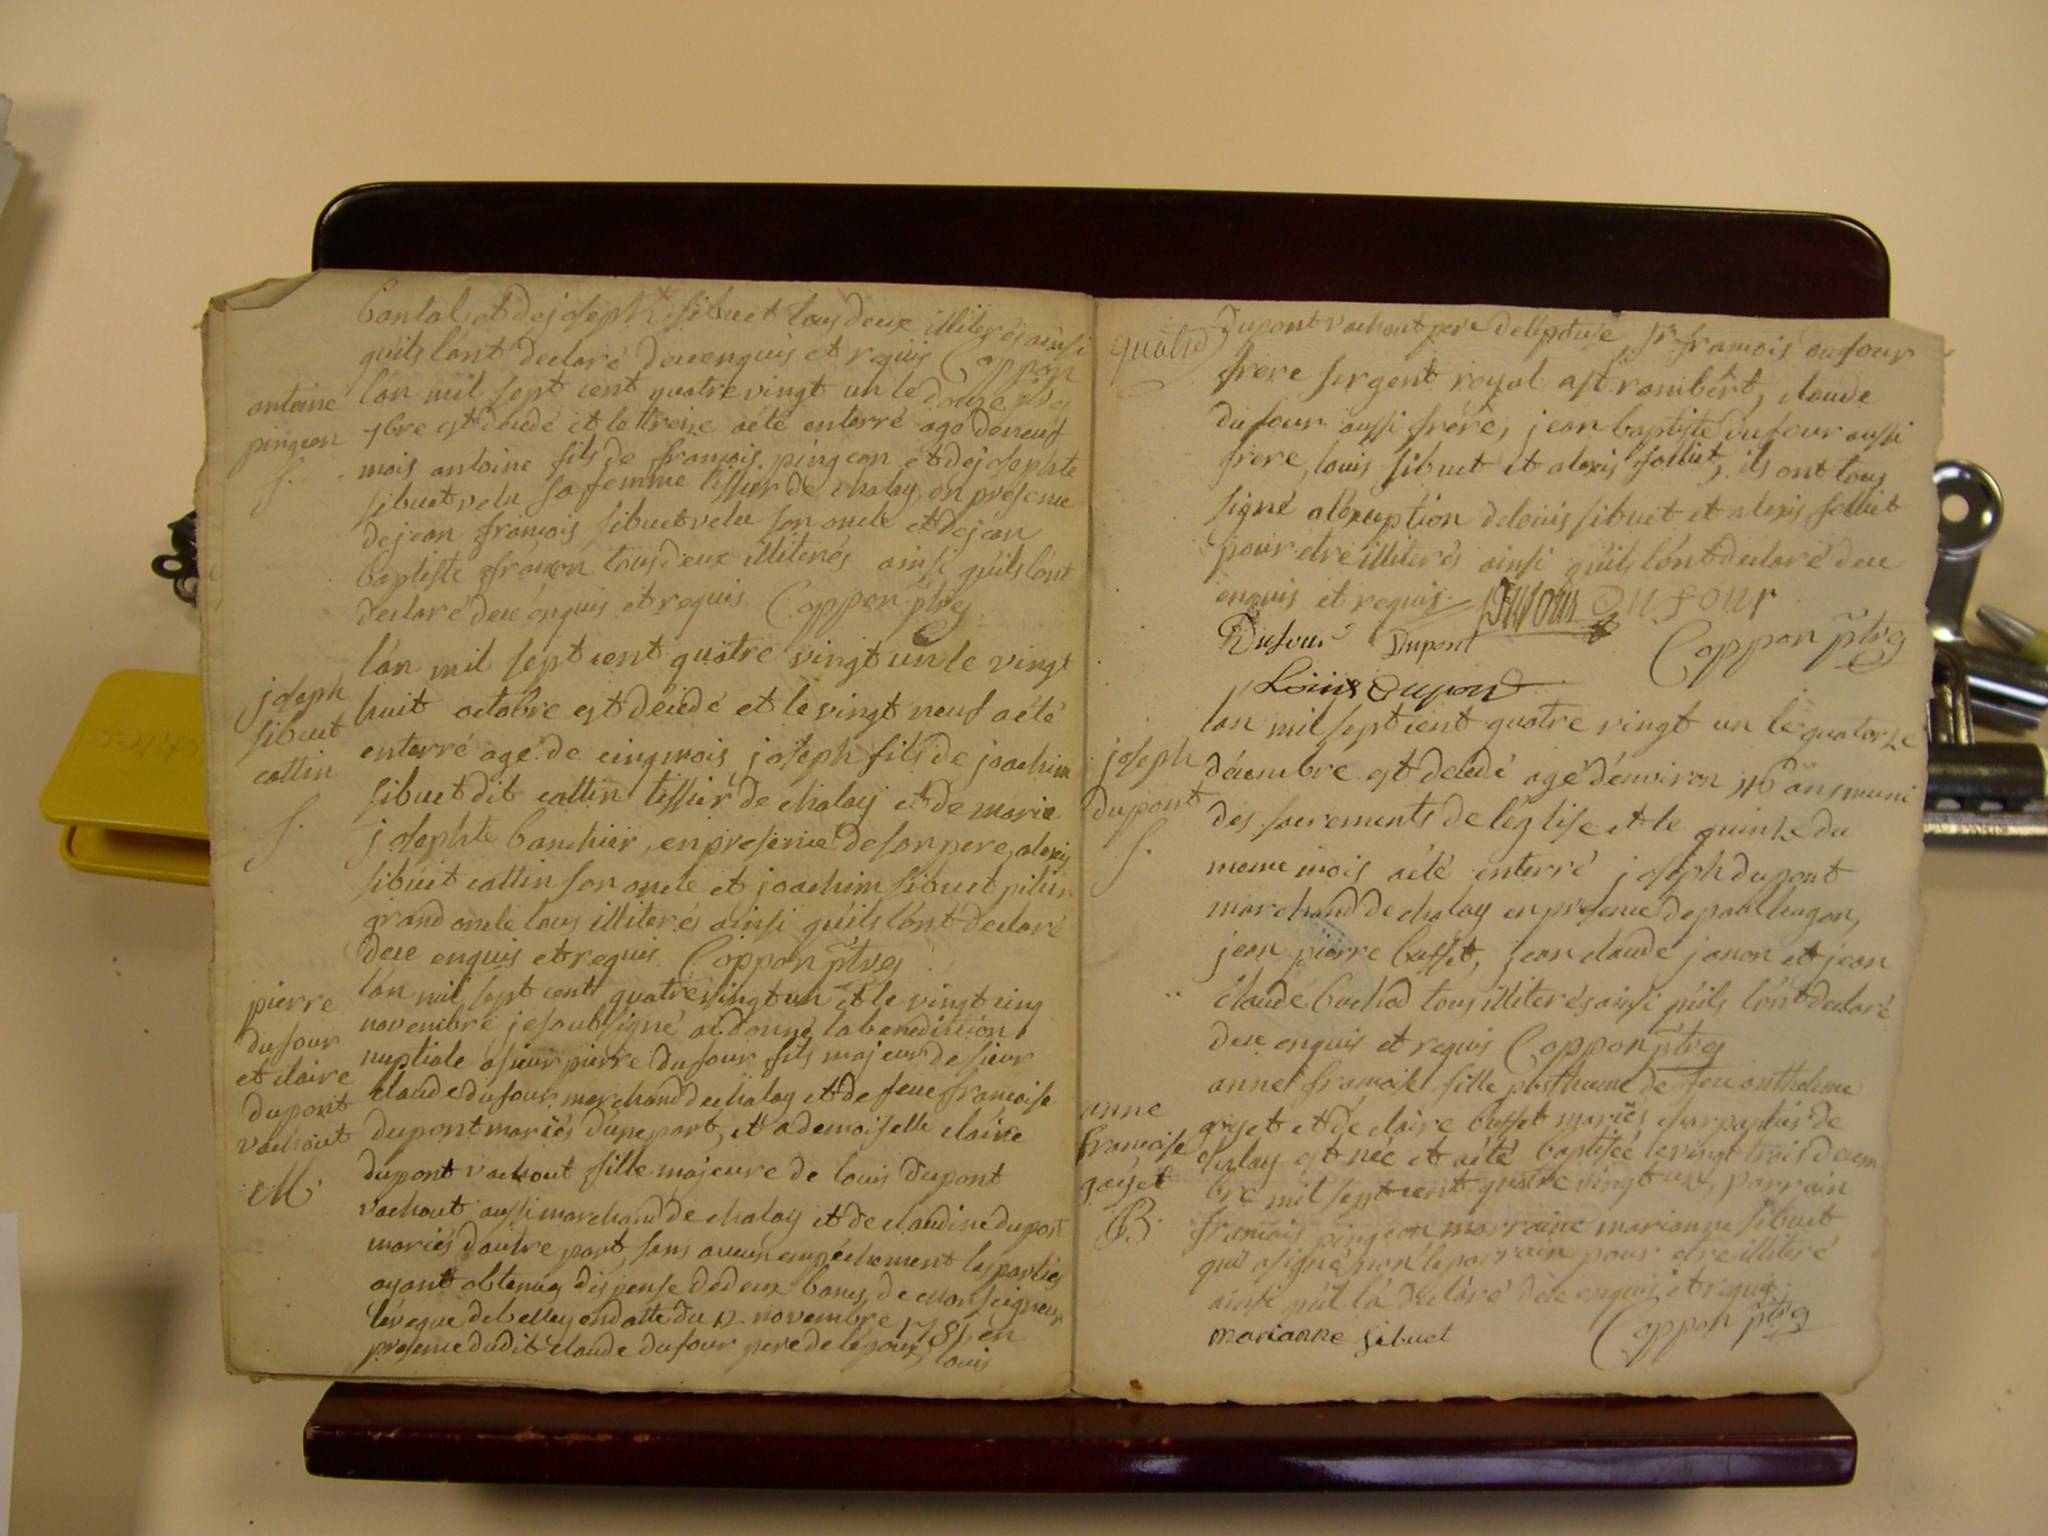 Cantal et de joseph sibuet tous deux illiterés ainsi
qu'ils l'ont declaré de ce enquis et requis Coppon
l'an mil sept cent quatre vingt un le douze ptre
antoine
pingeon
s.
7bre est decedé et le treize a été enterré agé de neuf
mois antoine fils de francois pingeon et de josephte
sibuet velu sa femme tissier de chaley en presence
de jean francois sibuet velu son oncle et de jean
baptiste tous deux illiterés ainsi qu'ils l'ont
declaré de ce enquis et requis Coppon ptre
l'an mil sept cent quatre vingt un le vingt
joseph
sibuet
cattin
s.
huit octobre est décédé et le vingt neuf a été
enterré agé de cinq mois joseph fils de joachim
sibuet dit cattin tissier de chaley et de marie
josephte banchier, en presence de son pere, alexis
sibuet cattin son oncle et joachim sibuet
grand oncle tous illiterés ainsi qu'ils l'ont declaré
de ce enquis et requis. Coppon ptre
pierre
dufour
et claire
dupont
vachout
M.
l'an mil sept cent quatre vingt un et le vingt cinq
novembre je soubsigné ai donné la benediction
nuptiale a sieur pierre dufour fils majeur de sieur
claude dufour marchand de chaley et de feue francoise
dupont mariés d'une part, et a demoiselle claire
dupont vachout fille majeure de louis dupont
vachout aussi marchand de chaley et de claudine dupont
mariés d'autre part, sans aucun empechement les parties
ayant obtenues dispense de deux bancs de Monseigneur
l'eveque de belley en datte du 12 novembre 1781, en
presence dudit claude dufour pere de l'epoux, louis
dupont vachout pere de l'epouse, sr francois dufour
frere sergent royal a st rambert, claude
dufour aussi frére, jean baptiste dufour aussi
frere, louis sibuet et alexis folliet, ils ont tous
signé a l'exception de louis sibuet et alexis folliet
pour etre illiterés ainsi qu'ils l'ont declaré de ce
enquis et requis. Dufour
Dufour Dupont
Coppon ptre
Louis Dupont
l'an mil sept cent quatre vingt un le quatorze
joseph
dupont
s.
décembre est décédé agé d'environ ans muni
des sacrements de l'église et le quinze du
meme mois a été enterré joseph dupont
marchand de chaley en presence de paul hugon,
jean pierre busset, jean claude janon et jean
claude bachod tous illiterés ainsi qu'ils l'ont declaré
de ce enquis et requis Coppon ptre
anne
francoise
goyet
B.
anne francoise fille posthume de feu anthelme
goyet et de claire busset mariés de
chaley est née et a été baptisée le vingt trois decem
bre mil sept cent quatre vingt un, parrain
francois pingeon marraine marianne sibuet
qui a signé non le parrain pour etre illiteré
ainsi qu'il l'a declaré de ce enquis et requis.
marianne sibuet Coppon ptre